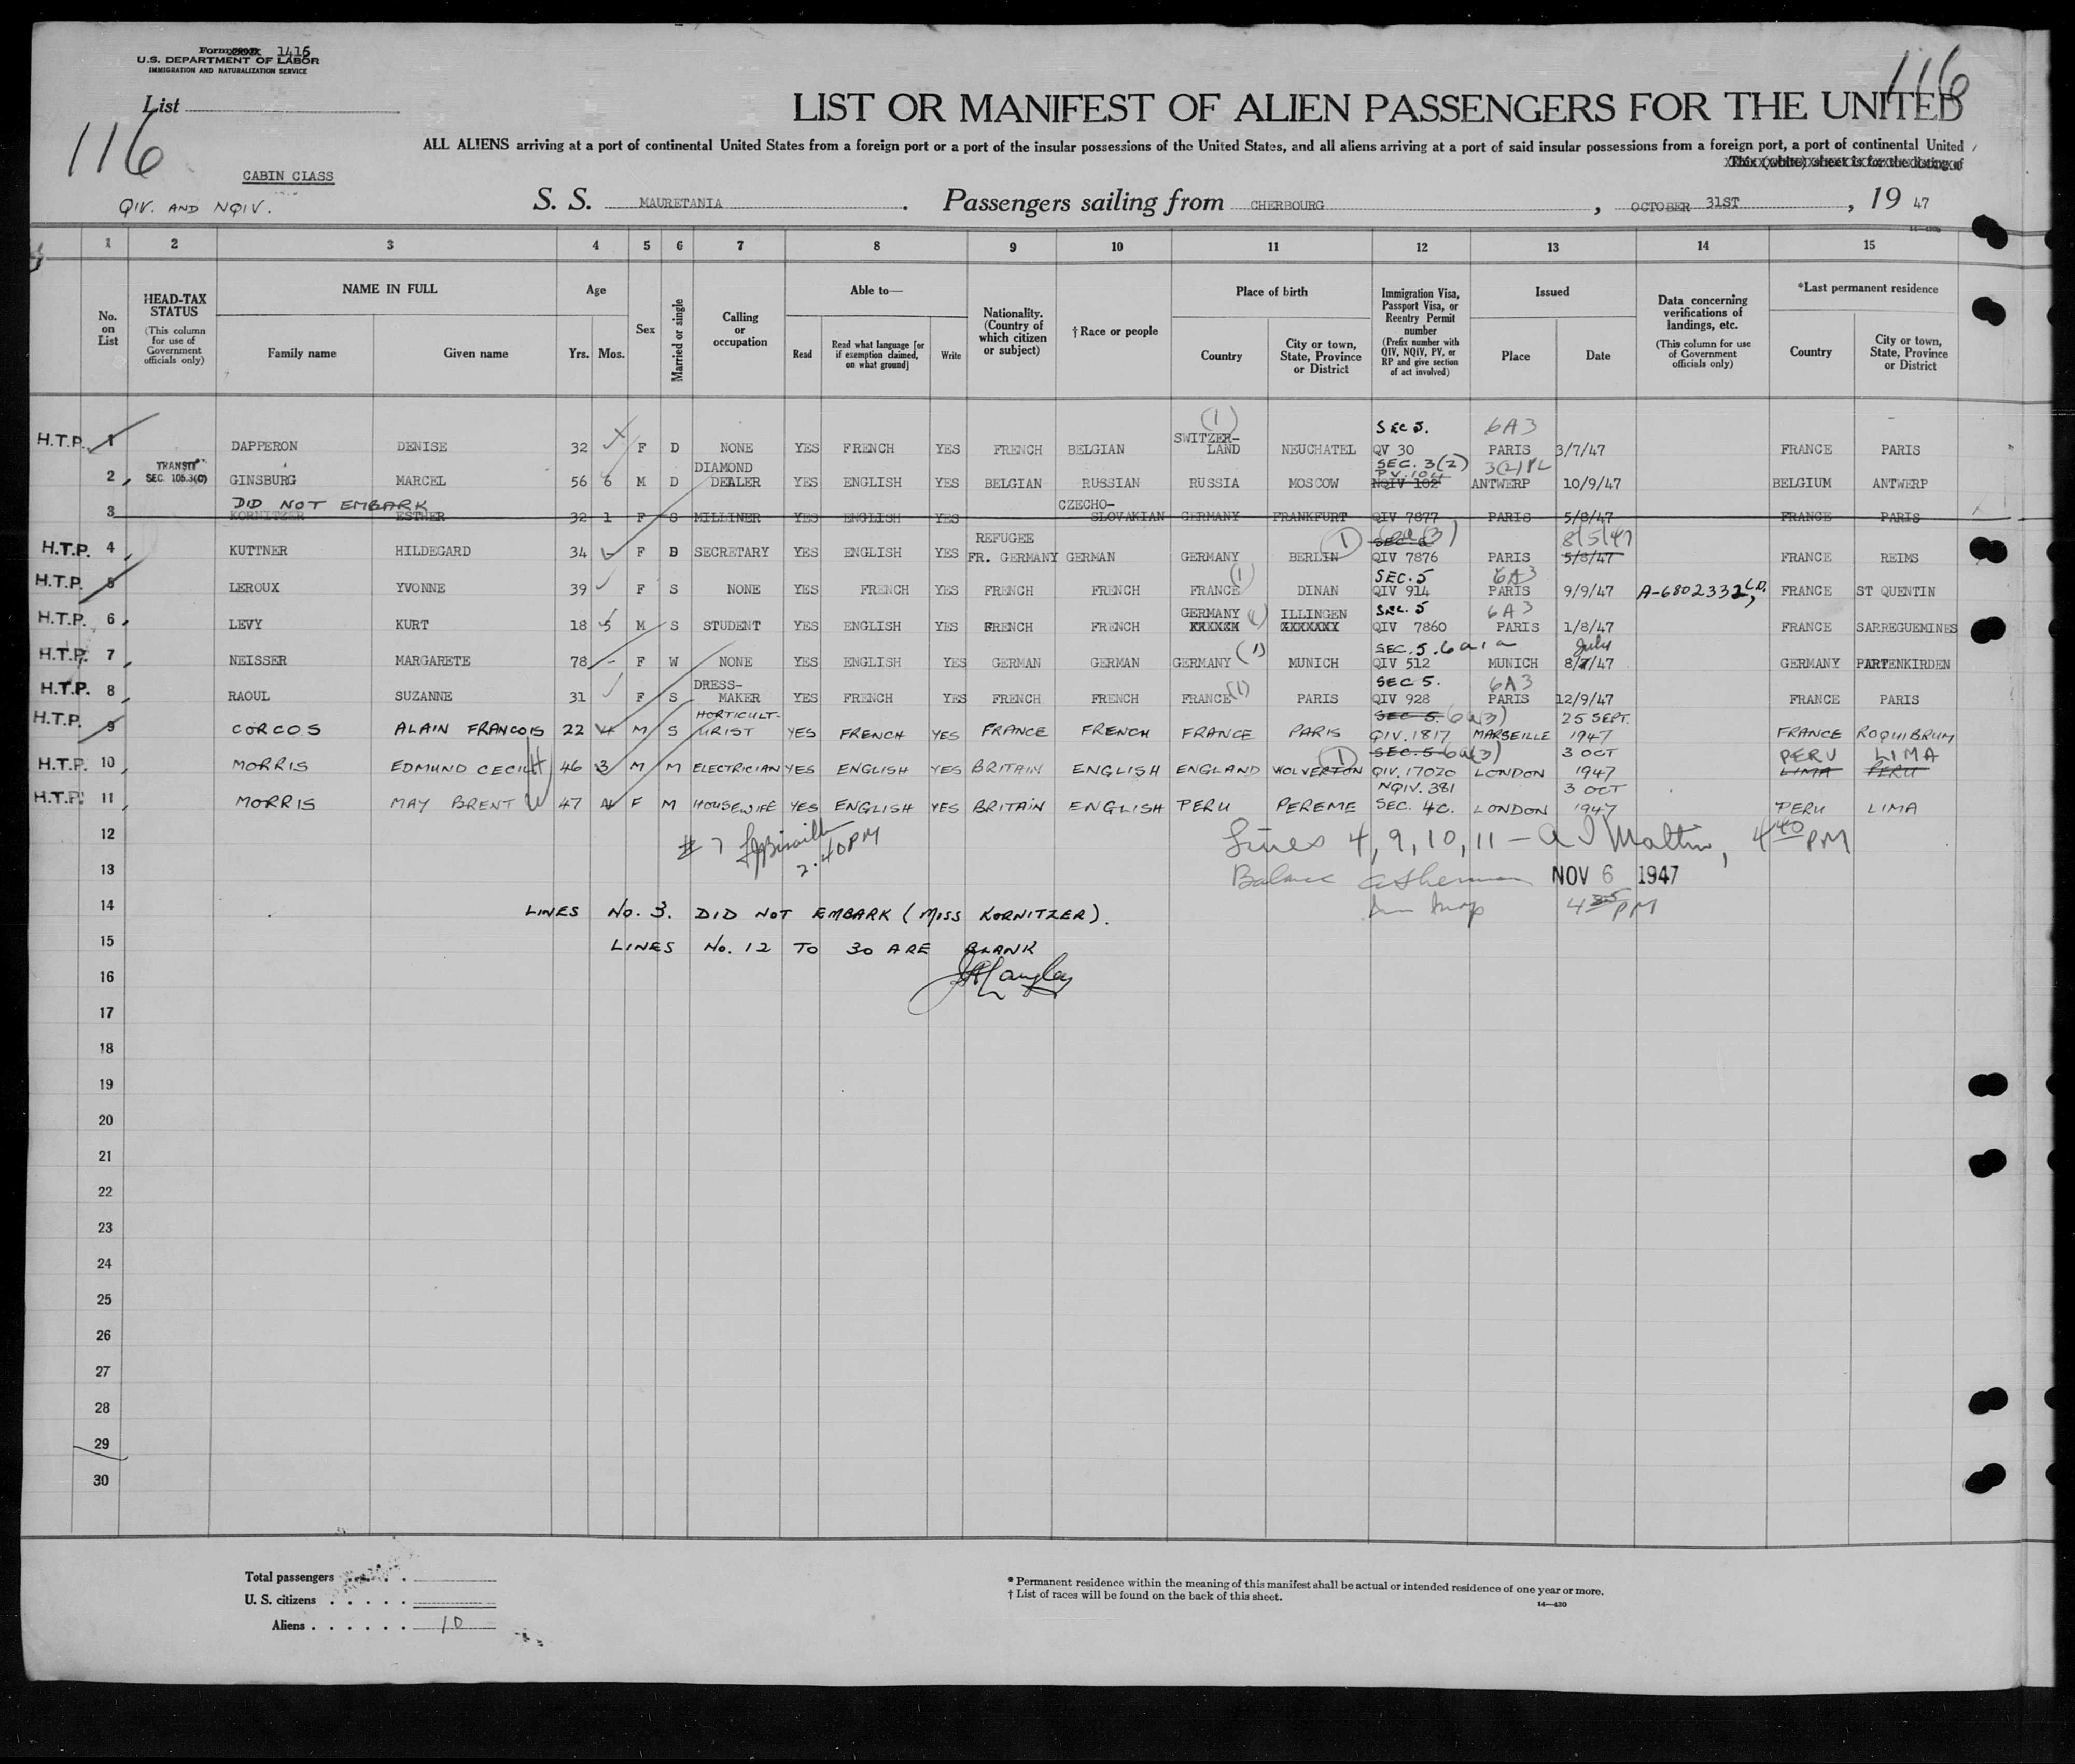 Form 1416
U.S. DEPARTMENT OF LABOR
IMMIGRATION AND NATURALIZATION SERVICE
List
116
116
LIST OR MANIFEST OF ALIEN PASSENGERS FOR THE UNITED
ALL ALIENS arriving at a port of continental United States from a foreign port or a port of the insular possessions of the United States, and all aliens arriving at a port of said insular possessions from a foreign port, a port of continental United
This (white) sheet is for the listing of
CABIN CLASS
QIV. AND NQIV.
S. S. MAURETANIA. Passengers sailing from CHERBOURG, OCTOBER 31ST, 19 47
1 2 3 4 5 6 7 8 9 10 11 12 13 14 15
No. on List
HEAD-TAX STATUS (This column for use of Government officials only)
NAME IN FULL
Family name Given name
Age
Yrs. Mos.
Sex
Married or single
Calling or occupation
Able to—
Read Read what language [or if exemption claimed, on what ground] Write
Nationality. (Country of which citizen or subject)
†Race or people
Place of birth
Country City or town, State, Province or District
Immigration Visa, Passport Visa, or Reentry Permit number (Prefix number with QIV, NQIV, PV, or RP and give section of act involved)
Issued
Place Date
Data concerning verifications of landings, etc. (This column for use of Government officials only)
*Last permanent residence
Country City or town, State, Province or District
(1) SEC 5. 6A3
H.T.P. 1 DAPPERON DENISE 32 F D NONE YES FRENCH YES FRENCH BELGIAN SWITZER-LAND NEUCHATEL QV 30 PARIS 3/7/47 FRANCE PARIS
TRANSIT SEC. 105.3(C) DIAMOND SEC. 3(2) PV.104 3(2) PL
2 GINSBURG MARCEL 56 6 M D DEALER YES ENGLISH YES BELGIAN RUSSIAN RUSSIA MOSCOW NQIV 102 ANTWERP 10/9/47 BELGIUM ANTWERP
DID NOT EMBARK CZECHO-
3 KORNITZER ESTHER 32 1 F S MILLINER YES ENGLISH YES SLOVAKIAN GERMANY FRANKFURT QIV 7877 PARIS 5/8/47 FRANCE PARIS
REFUGEE (1) 8/5/47
H.T.P. 4 KUTTNER HILDEGARD 34 F D SECRETARY YES ENGLISH YES FR. GERMANY GERMAN GERMANY BERLIN QIV 7876 PARIS 5/8/47 FRANCE REIMS
(1) SEC. 5 6A3
H.T.P. 5 LEROUX YVONNE 39 F S NONE YES FRENCH YES FRENCH FRENCH FRANCE DINAN QIV 914 PARIS 9/9/47 A-6802332 FRANCE ST QUENTIN
GERMANY (1) ILLINGEN SEC. 5 6A3
H.T.P. 6 LEVY KURT 18 5 M S STUDENT YES ENGLISH YES FRENCH FRENCH XXXXXX XXXXXXX QIV 7860 PARIS 1/8/47 FRANCE SARREGUEMINES
(1) SEC. 5. 6a1a July
H.T.P. 7 NEISSER MARGARETE 78 - F W NONE YES ENGLISH YES GERMAN GERMAN GERMANY MUNICH QIV 512 MUNICH 8/7/47 GERMANY PARTENKIRDEN
DRESS- SEC 5. 6A3
H.T.P. 8 RAOUL SUZANNE 31 F S MAKER YES FRENCH YES FRENCH FRENCH FRANCE (1) PARIS QIV 928 PARIS 12/9/47 FRANCE PARIS
HORTICULT- SEC 5. 6a(3) 25 SEPT.
H.T.P. 9 CORCOS ALAIN FRANCOIS 22 4 M S URIST YES FRENCH YES FRANCE FRENCH FRANCE PARIS QIV. 1817 MARSEILLE 1947 FRANCE ROQUIBRUM
(1) SEC. 5 6a(3) 3 OCT PERU LIMA
H.T.P. 10 MORRIS EDMUND CECIL H 46 3 M M ELECTRICIAN YES ENGLISH YES BRITAIN ENGLISH ENGLAND WOLVERTON QIV. 17020 LONDON 1947 LIMA PERU
NQIV. 381 3 OCT
H.T.P. 11 MORRIS MAY BRENT W 47 4 F M HOUSEWIFE YES ENGLISH YES BRITAIN ENGLISH PERU PEREME SEC. 4C. LONDON 1947 PERU LIMA
12 # 7 2.40PM Lines 4, 9, 10, 11 — 4 40 PM
13 Balance NOV 6 1947
14 LINES No. 3. DID NOT EMBARK (MISS KORNITZER). 4 35 PM
15 LINES No. 12 TO 30 ARE BLANK
16 Langley
17
18
19
20
21
22
23
24
25
26
27
28
29
30
Total passengers
U. S. citizens
Aliens 10
* Permanent residence within the meaning of this manifest shall be actual or intended residence of one year or more.
† List of races will be found on the back of this sheet.
14—430